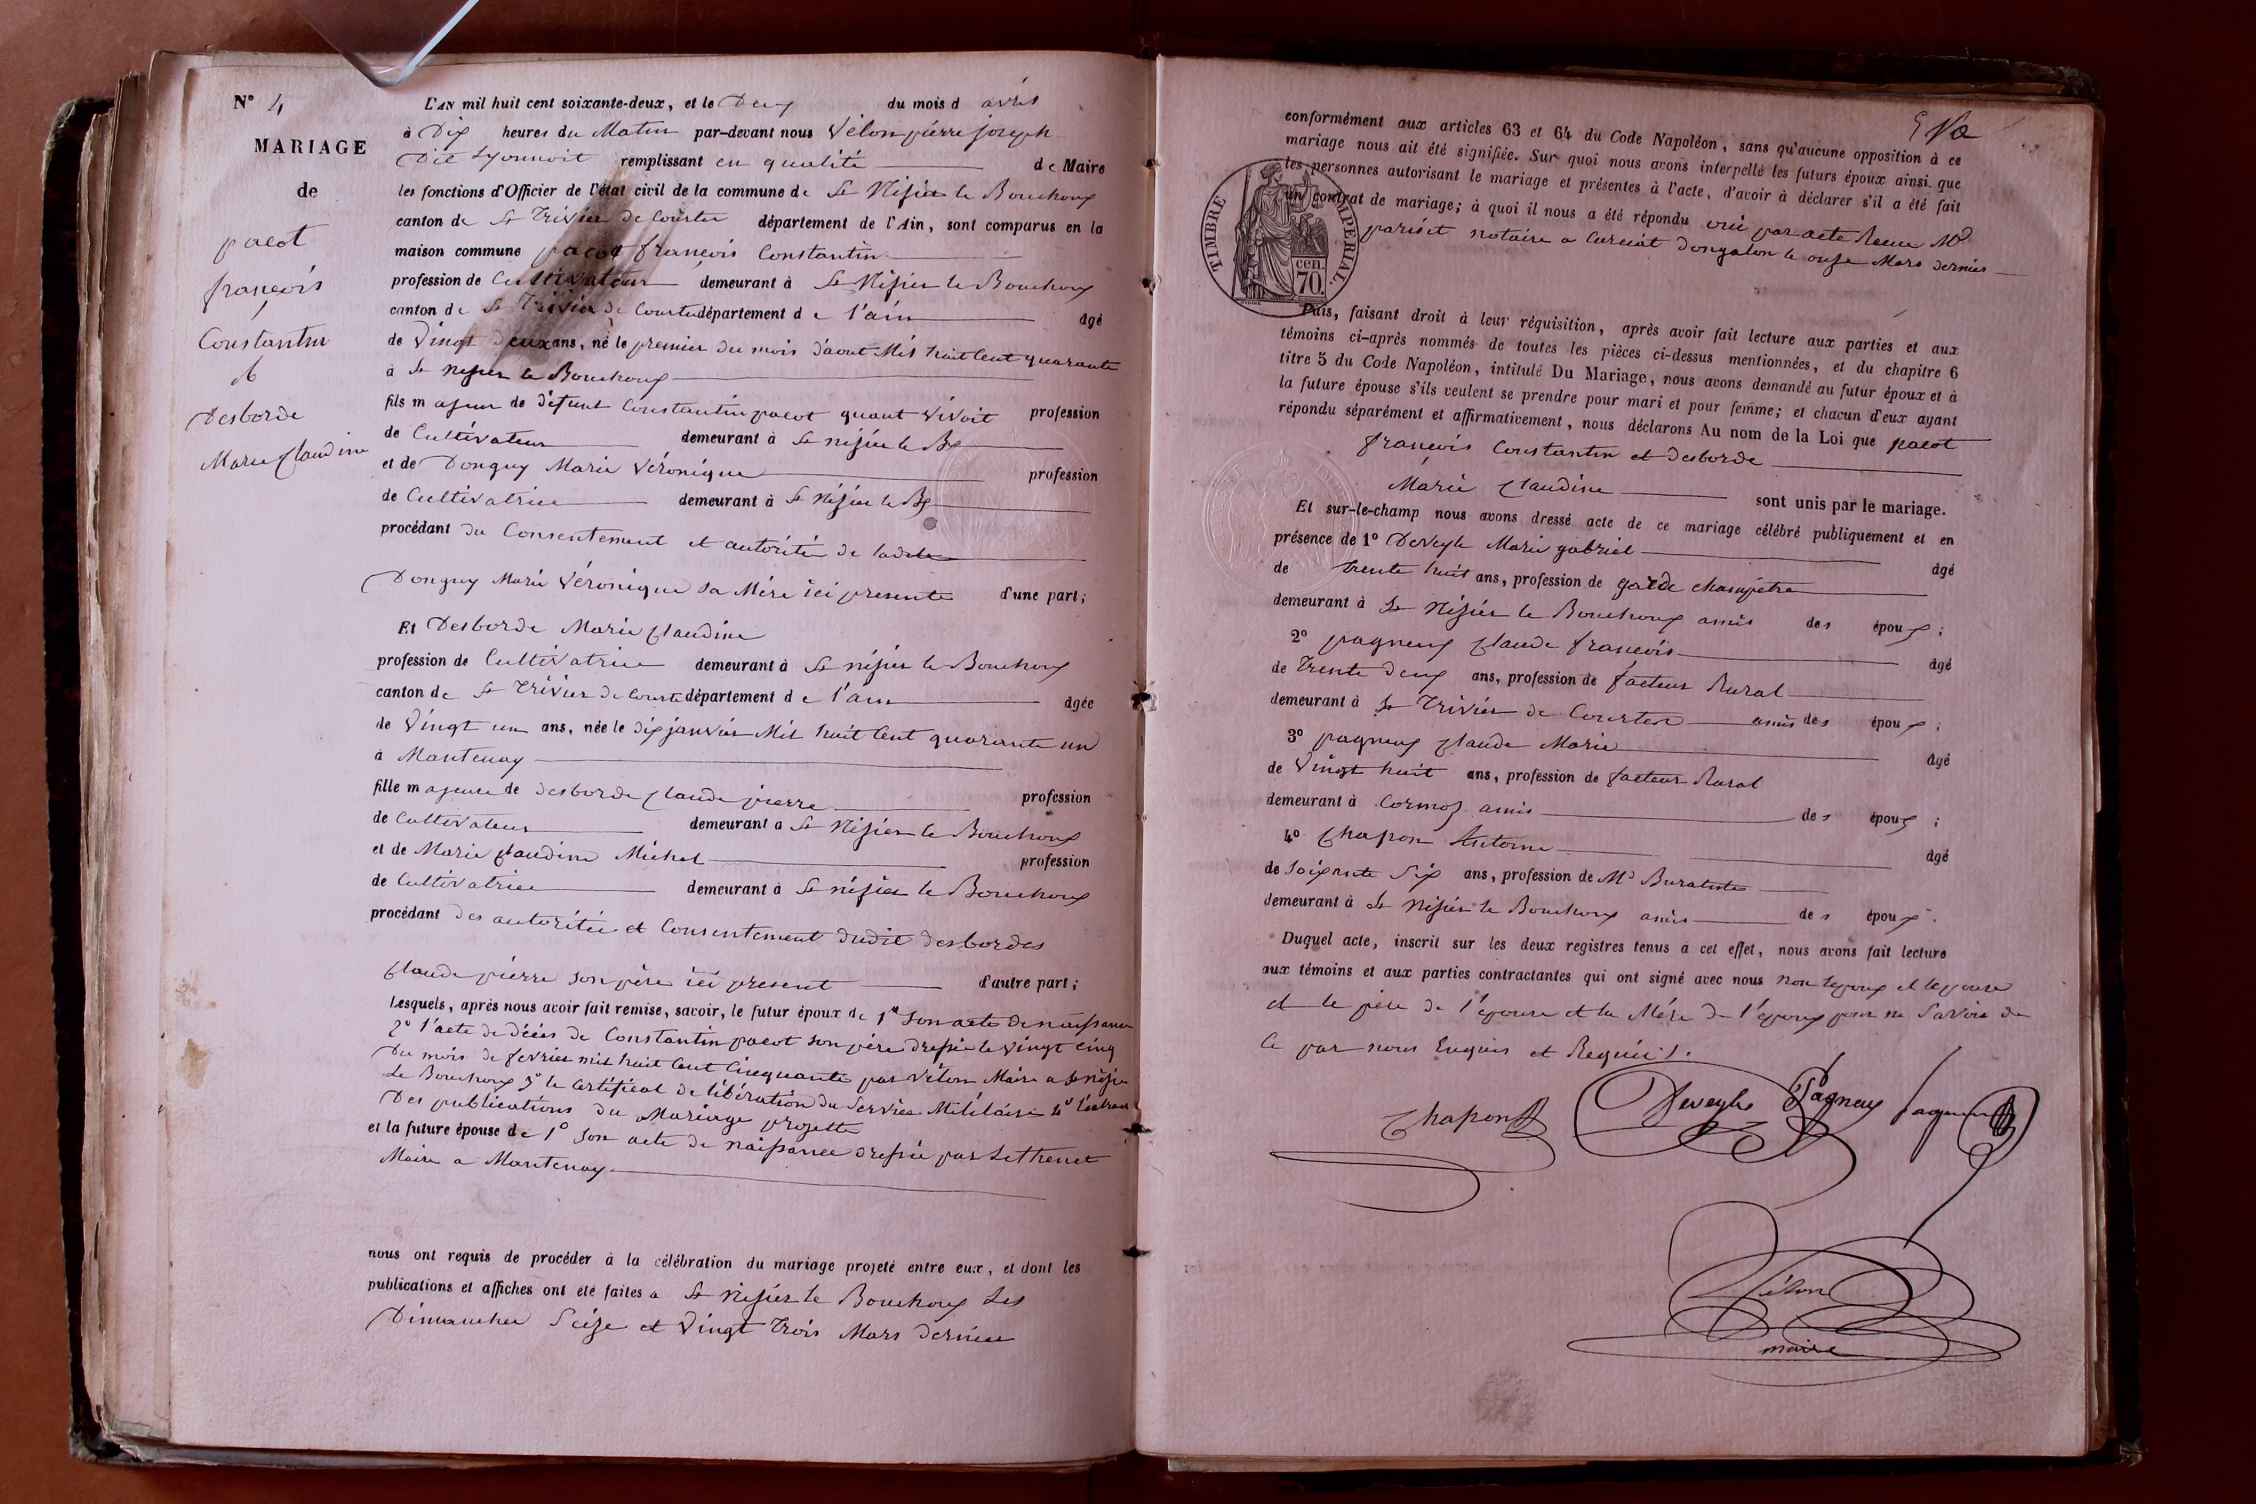 N° 4
MARIAGE
de
pacot
françois
Constantin
&
Desborde
Marie Claudine
L'AN mil huit cent soixante-deux, et le Deux du mois d avril
à Dix heures du Matin par-devant nous Vélon pierre joseph
Dit Lyonnoit remplissant en qualité de Maire
les fonctions d'Officier de l'état civil de la commune de St Nisier le Bouchoux
canton de St Trivier de Courtes département de l'Ain, sont comparus en la
maison commune pacot françois Constantin
profession de Cultivateur demeurant à St Nisier le Bouchoux
canton de St Trivier de Courtes département de l'ain âgé
de Vingt deux ans, né le premier du mois d'aout Mil huit Cent quarante
à St nisier le Bouchoux
fils majeur de Défunt Constantin pacot quant Vivoit profession
de Cultivateur demeurant à St nisier le Bx
et de Donguy Marie Véronique profession
de Cultivatrice demeurant à St Nisier le Bx
procédant du Consentement et autorité de ladite
Donguy Marie Véronique sa Mère ici presente d'une part;
Et Desborde Marie Claudine
profession de Cultivatrice demeurant à St nisier le Bouchoux
canton de St Trivier de Courtes département de l'ain âgée
de Vingt un ans, née le dix janvier Mil huit Cent quarante un
à Mantenay
fille majeure de desborde Claude pierre profession
de Cultivateur demeurant a St Nisier le Bouchoux
et de Marie Claudine Michel profession
de Cultivatrice demeurant à St nisier le Bouchoux
procédant des autorités et Consentement dudit desbordes
Claude pierre son père ici present d'autre part;
Lesquels, après nous avoir fait remise, savoir, le futur époux de 1° son acte de naissance
2° l'acte de décès de Constantin pacot son père dressé le Vingt Cinq
Du mois de fevrier mil huit Cent Cinquante par Vélon Maire a St nisier
Le Bouchoux 3° le Certificat de libération du Service Militaire 4° l'extrait
Des publications du Mariage projetté
et la future épouse de 1° son acte de naissance dressé par
Maire a Mantenay
nous ont requis de procéder à la célébration du mariage projeté entre eux, et dont les
publications et affiches ont été faites a St nisier le Bouchoux Les
Dimanches Seize et Vingt Trois Mars dernier
conformément aux articles 63 et 64 du Code Napoléon, sans qu'aucune opposition à ce
mariage nous ait été signifiée. Sur quoi nous avons interpellé les futurs époux ainsi que
les personnes autorisant le mariage et présentes à l'acte, d'avoir à déclarer s'il a été fait
un contrat de mariage; à quoi il nous a été répondu oui par acte Recu Md
pariset notaire a Curciat Dongalon le onze Mars dernier
TIMBRE IMPERIAL.
70 cen.
Puis, faisant droit à leur réquisition, après avoir fait lecture aux parties et aux
témoins ci-après nommés de toutes les pièces ci-dessus mentionnées, et du chapitre 6
titre 5 du Code Napoléon, intitulé Du Mariage, nous avons demandé au futur époux et à
la future épouse s'ils veulent se prendre pour mari et pour femme; et chacun d'eux ayant
répondu séparément et affirmativement, nous déclarons Au nom de la Loi que pacot
françois Constantin et desborde
Marie Claudine sont unis par le mariage.
Et sur-le-champ nous avons dressé acte de ce mariage célébré publiquement et en
présence de 1° Deveyle Marie gabriel âgé
de trente huit ans, profession de garde champêtre
demeurant à St Nisier le Bouchoux amis des époux;
2° pagneux Claude françois âgé
de Trente Deux ans, profession de facteur Rural
demeurant à St Trivier de Courtes amis des époux;
3° pagneux Claude Marie âgé
de Vingt huit ans, profession de facteur Rural
demeurant à Cormoz amis des époux;
4° Chapon Antoine âgé
de Soixante Six ans, profession de Md
demeurant à St Nisier le Bouchoux amis des époux.
Duquel acte, inscrit sur les deux registres tenus à cet effet, nous avons fait lecture
aux témoins et aux parties contractantes qui ont signé avec nous non lepoux et lepouse
et le père de l'épouse et la Mère de l'époux pour ne Savoir de
Ce par nous Enquis et Requis.
Chapon Deveyle Pagneux pagneux
Vélon
maire